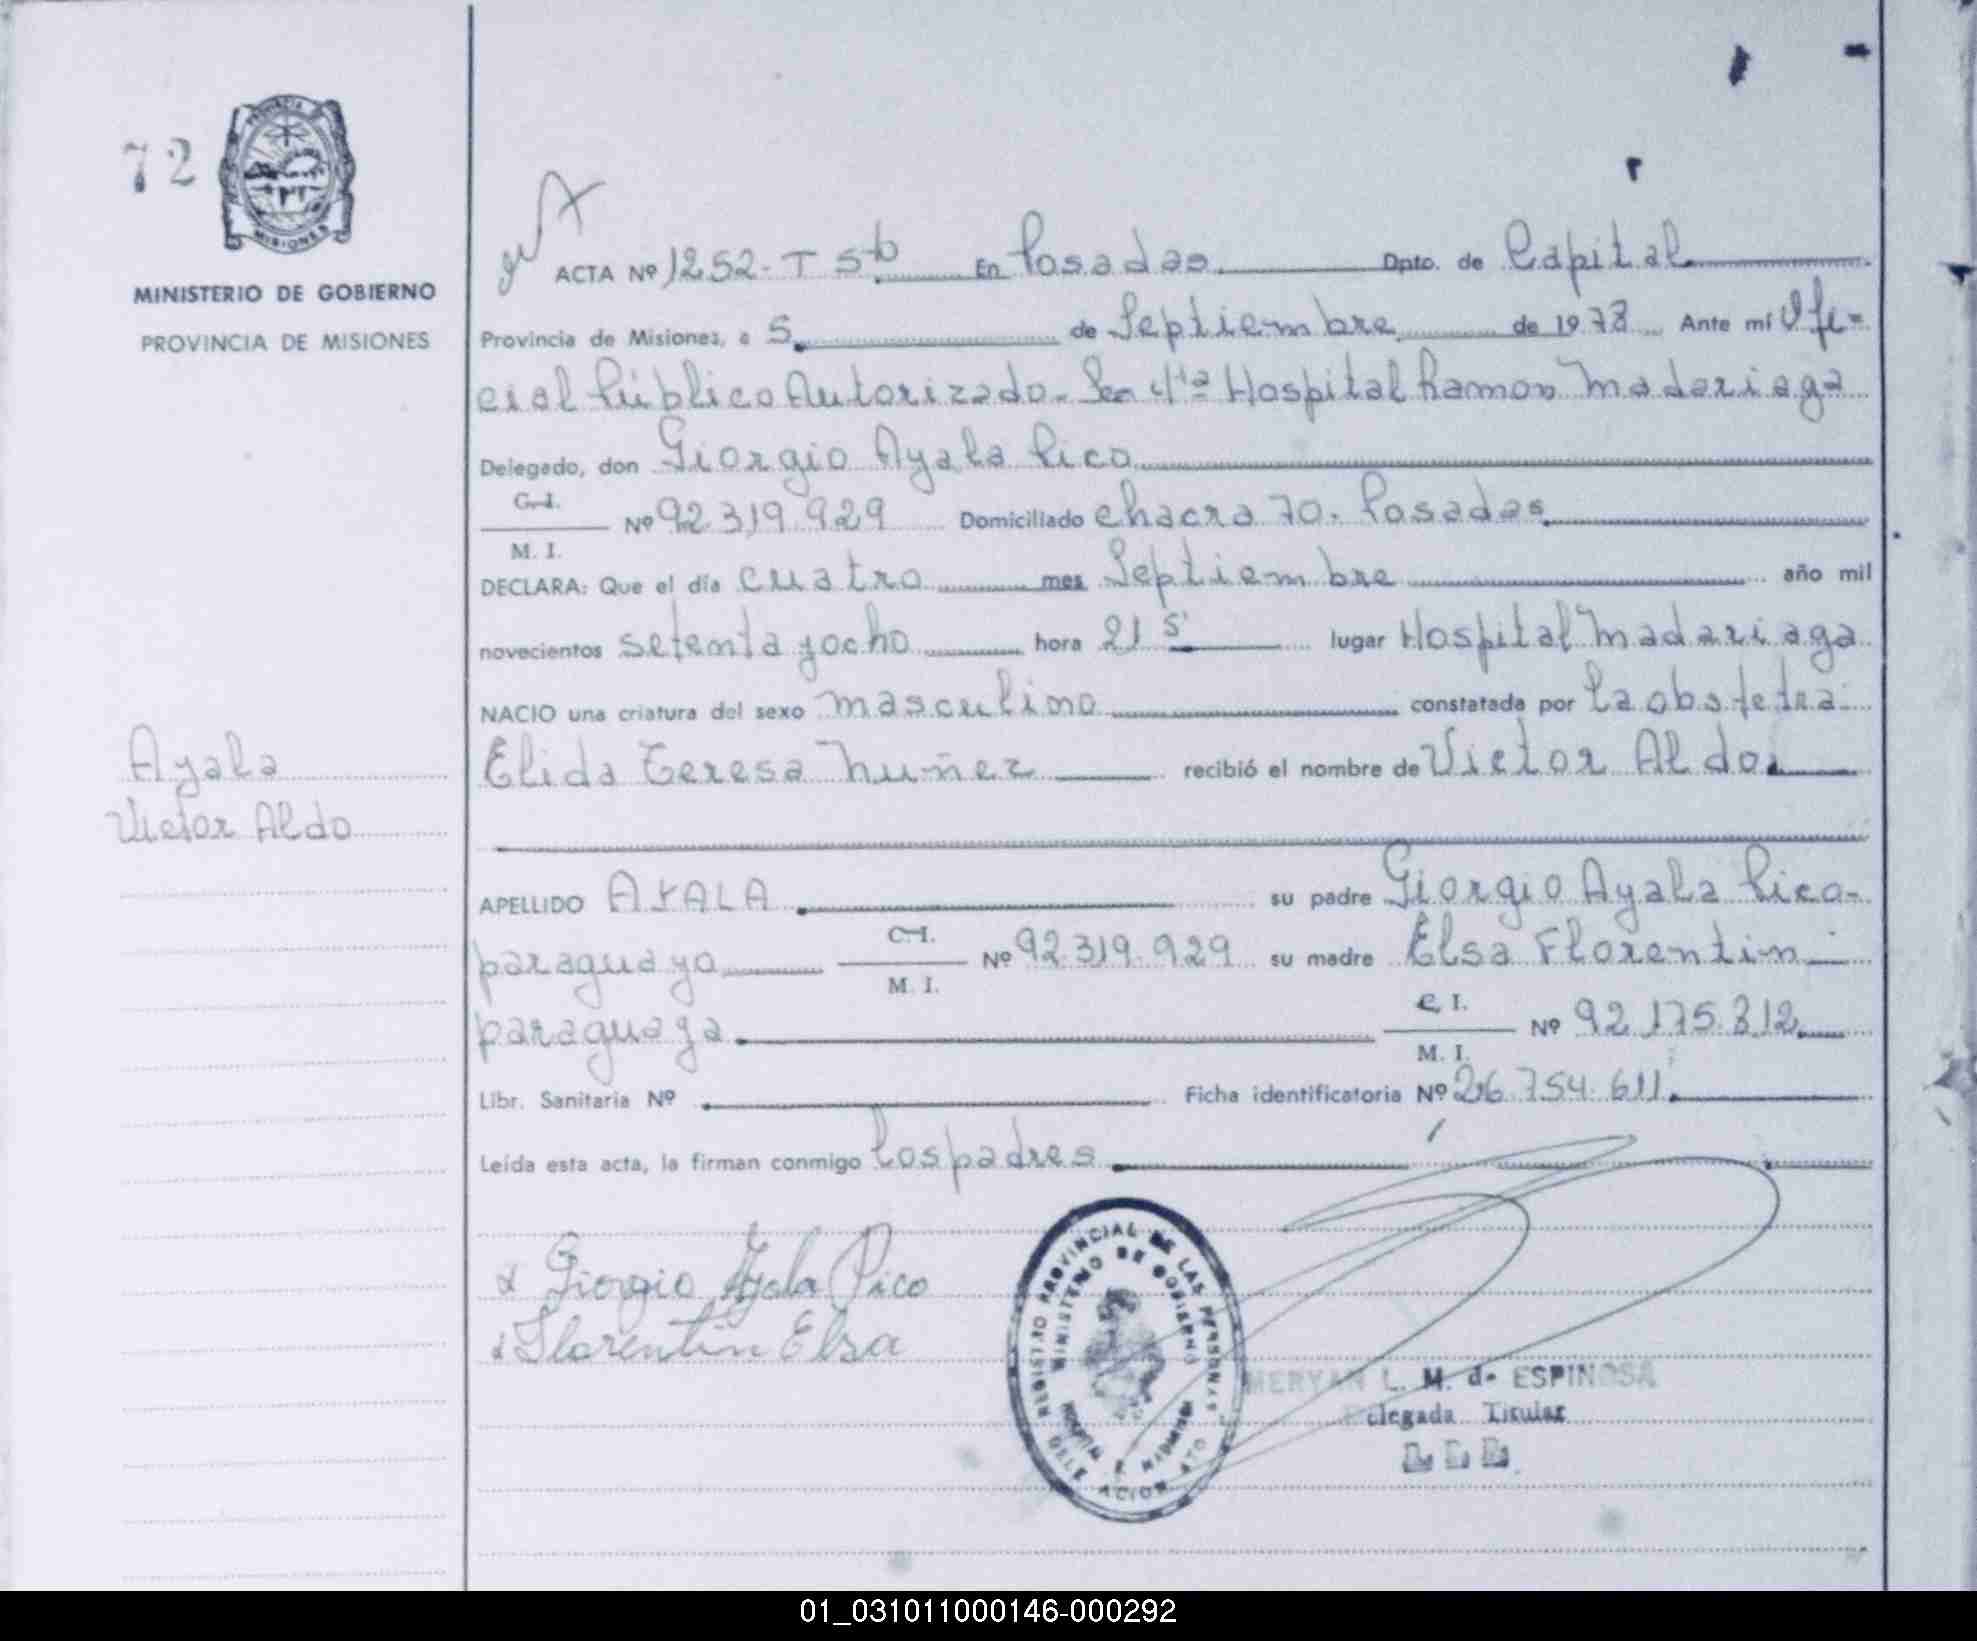 72
PROVINCIA
MISIONES
MINISTERIO DE GOBIERNO
PROVINCIA DE MISIONES
Ayala
Victor Aldo
ACTA Nº 1252-T 5to En Posadas Dpto. de Capital
Provincia de Misiones, a 5 de Septiembre de 1978 Ante mí Ofi-
cial Público Autorizado. Sec 4ta Hospital Ramon Madariaga
Delegado, don Giorgio Ayala Pico
C. I.
M. I. Nº 92.319.929 Domiciliado chacra 70. Posadas
DECLARA: Que el día cuatro mes Septiembre año mil
novecientos setenta y ocho hora 21 5' lugar Hospital Madariaga
NACIO una criatura del sexo masculino constatada por la obstetra
Elida Teresa Nuñez recibió el nombre de Victor Aldo
APELLIDO AYALA su padre Giorgio Ayala Pico-
paraguayo C. I. M. I. Nº 92.319.929 su madre Elsa Florentin
paraguaya C. I. M. I. Nº 92.175.312
Libr. Sanitaria Nº Ficha identificatoria Nº 26.754.611
Leída esta acta, la firman conmigo los padres
Giorgio Ayala Pico
Florentin Elsa
REGISTRO PROVINCIAL DE LAS PERSONAS
MINISTERIO DE GOBIERNO
MERYAN L. M. de ESPINOSA
Delegada Titular
01_031011000146-000292